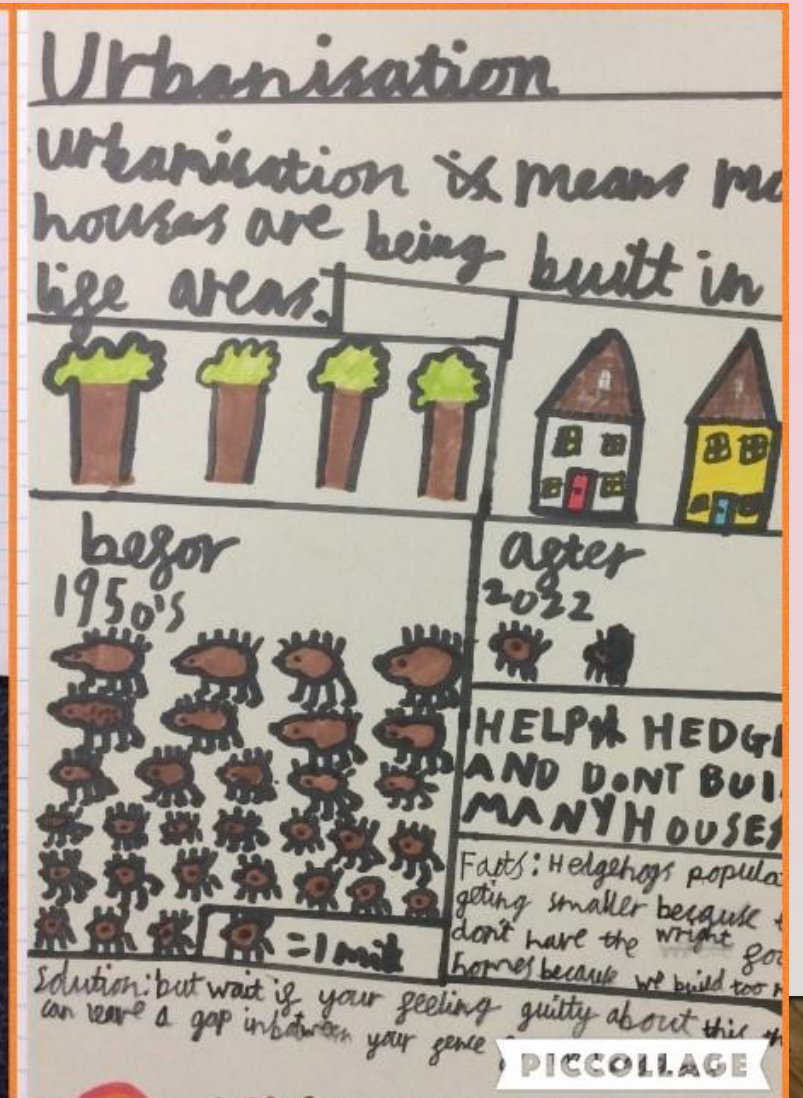 Urbanisation
urbanisation is means mo
houses are being built in
life areas.
befor
1950's
after
2022
= 1 mil
HELP HEDG
AND DONT BUI
MANY HOUSES
Facts: Hedgehogs popula
geting smaller because t
don't have the wright foo
homes because we build too m
Solution: but wait if your feeling guilty about this th
can leave a gap inbetween your fence
PICCOLLAGE